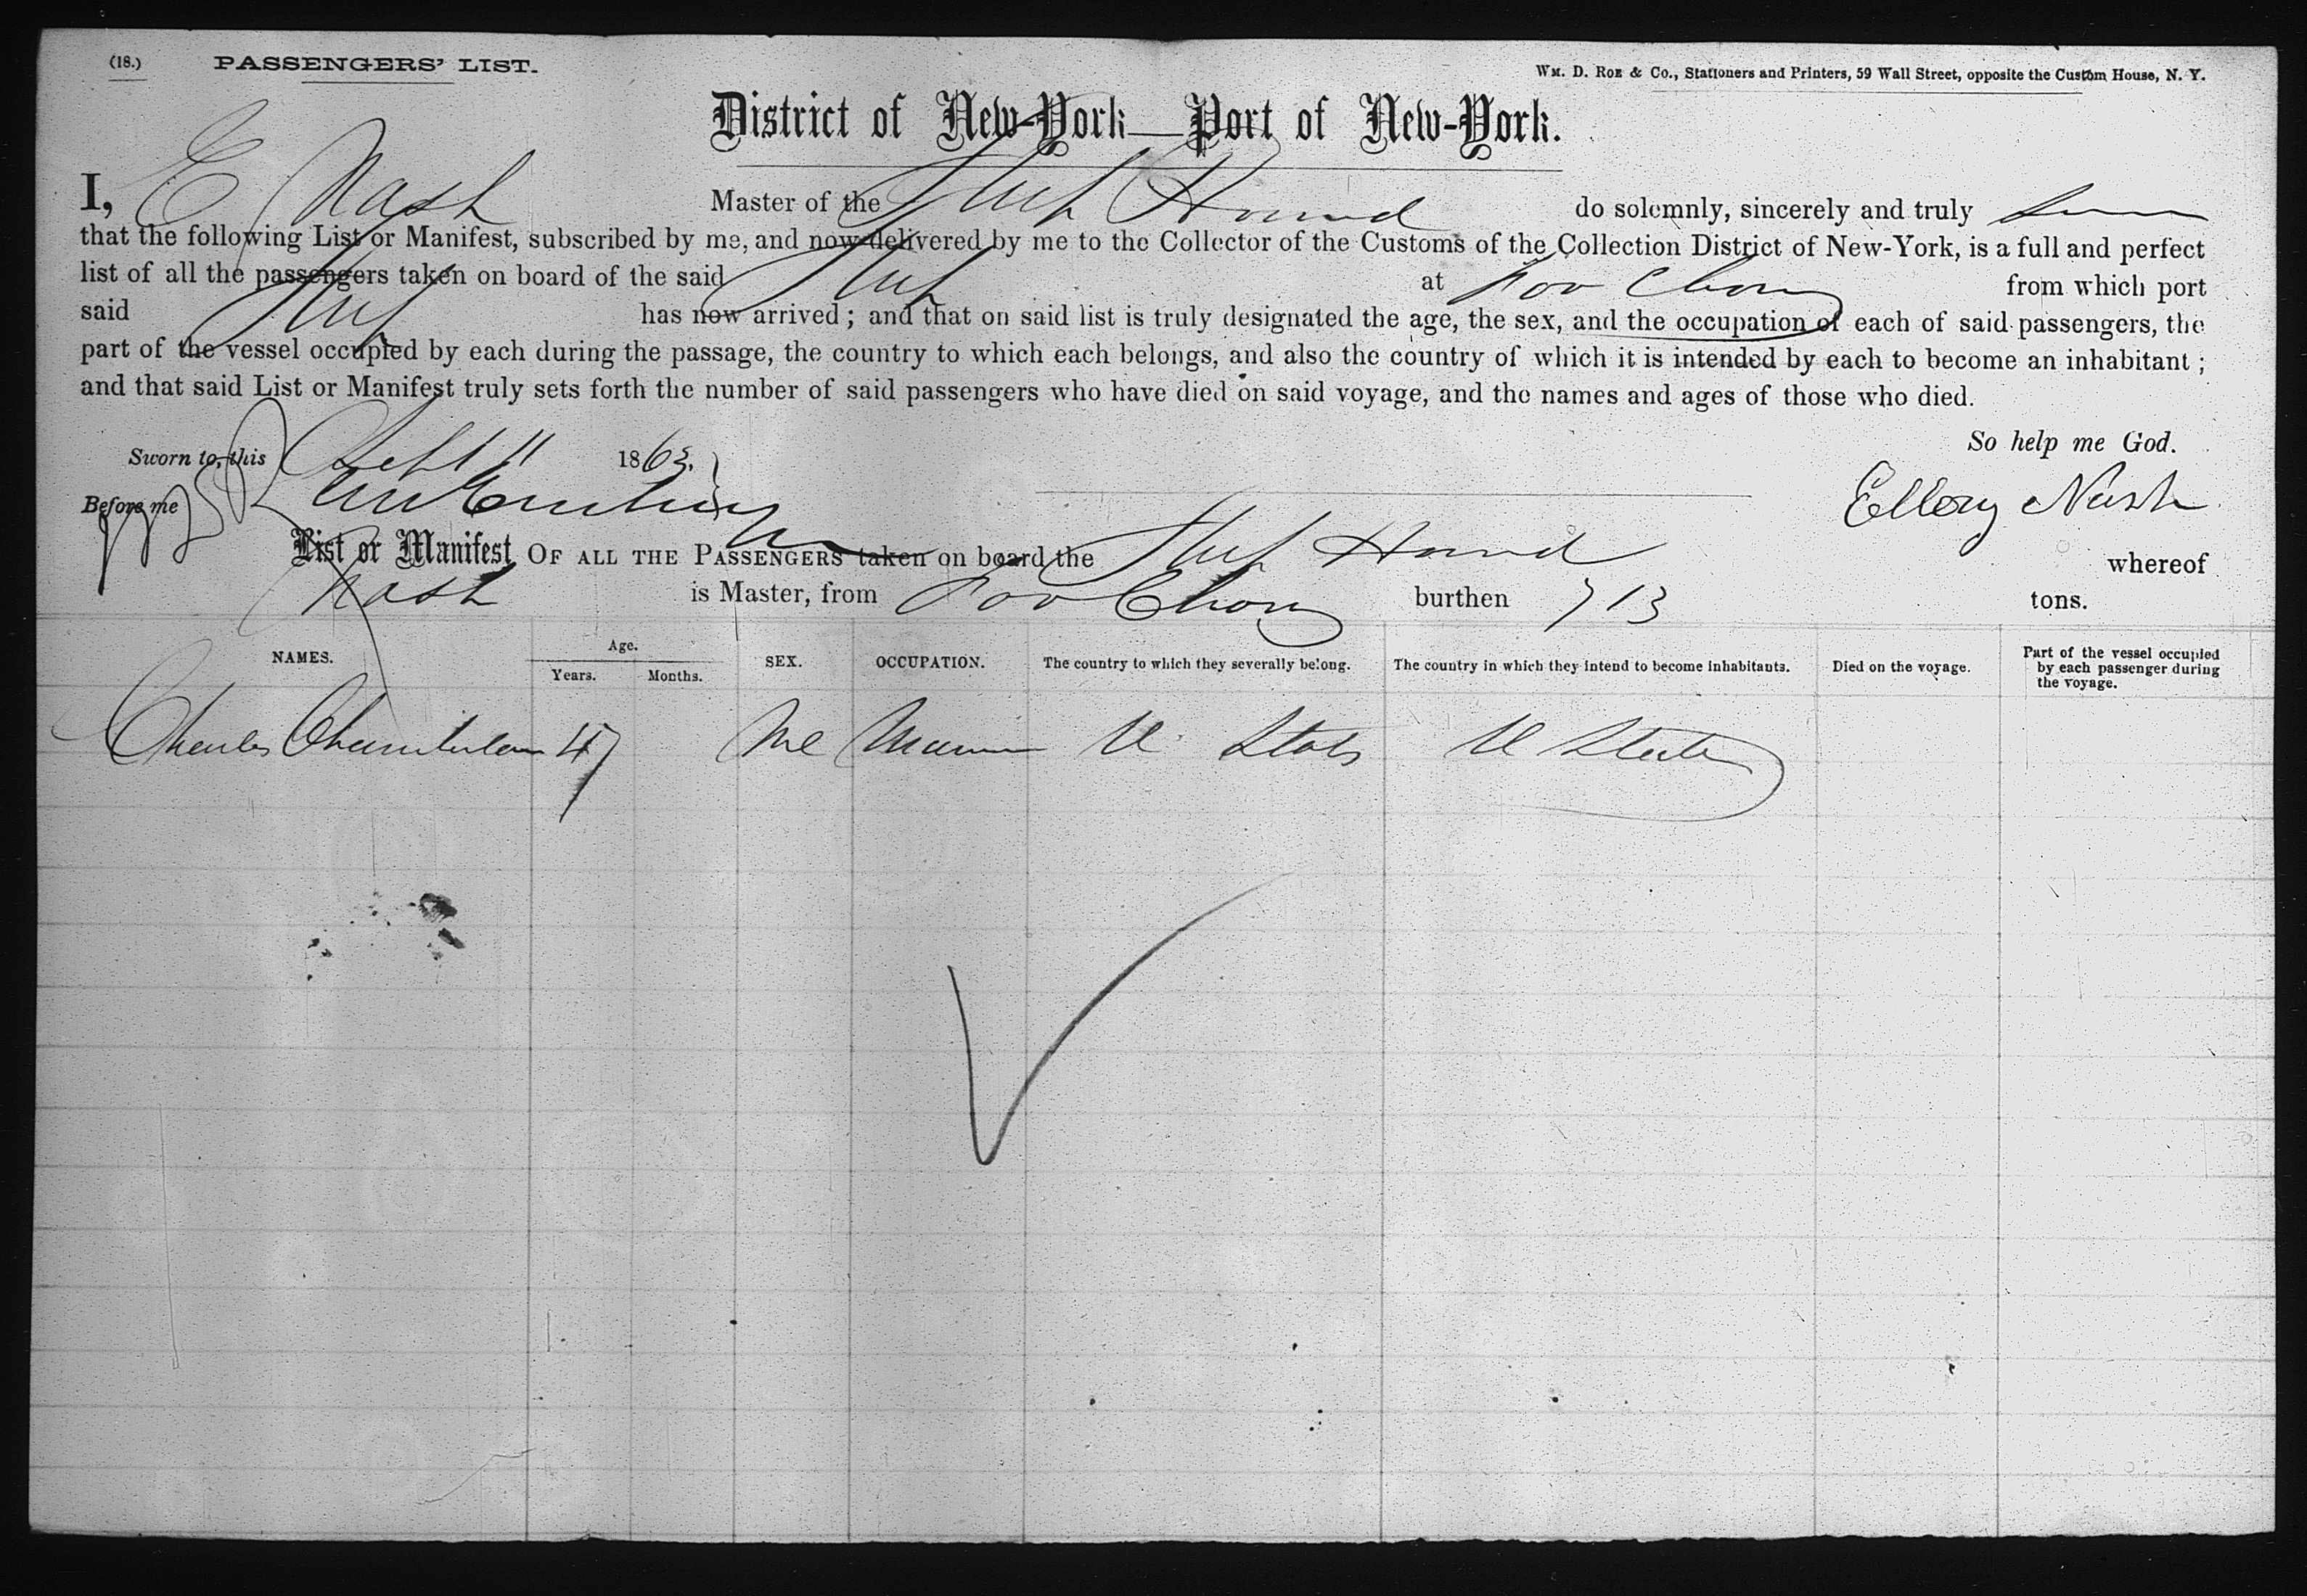 (18.) PASSENGERS' LIST.
WM. D. ROE & Co., Stationers and Printers, 59 Wall Street, opposite the Custom House, N. Y.
District of New-York—Port of New-York.
I, E Nash Master of the Ship Hound do solemnly, sincerely and truly
that the following List or Manifest, subscribed by me, and now delivered by me to the Collector of the Customs of the Collection District of New-York, is a full and perfect
list of all the passengers taken on board of the said Ship at Foo Chow from which port
said Ship has now arrived; and that on said list is truly designated the age, the sex, and the occupation of each of said passengers, the
part of the vessel occupied by each during the passage, the country to which each belongs, and also the country of which it is intended by each to become an inhabitant;
and that said List or Manifest truly sets forth the number of said passengers who have died on said voyage, and the names and ages of those who died.
So help me God.
Sworn to, this Sept 11 1863.
Before me
Ellery Nash
List or Manifest OF ALL THE PASSENGERS taken on board the Ship Hound whereof
Nash is Master, from Foo Chow burthen 713 tons.
NAMES. Age. Years. Months. SEX. OCCUPATION. The country to which they severally belong. The country in which they intend to become inhabitants. Died on the voyage. Part of the vessel occupied by each passenger during the voyage.
Charles Chamberlain 47 Ml U States U States